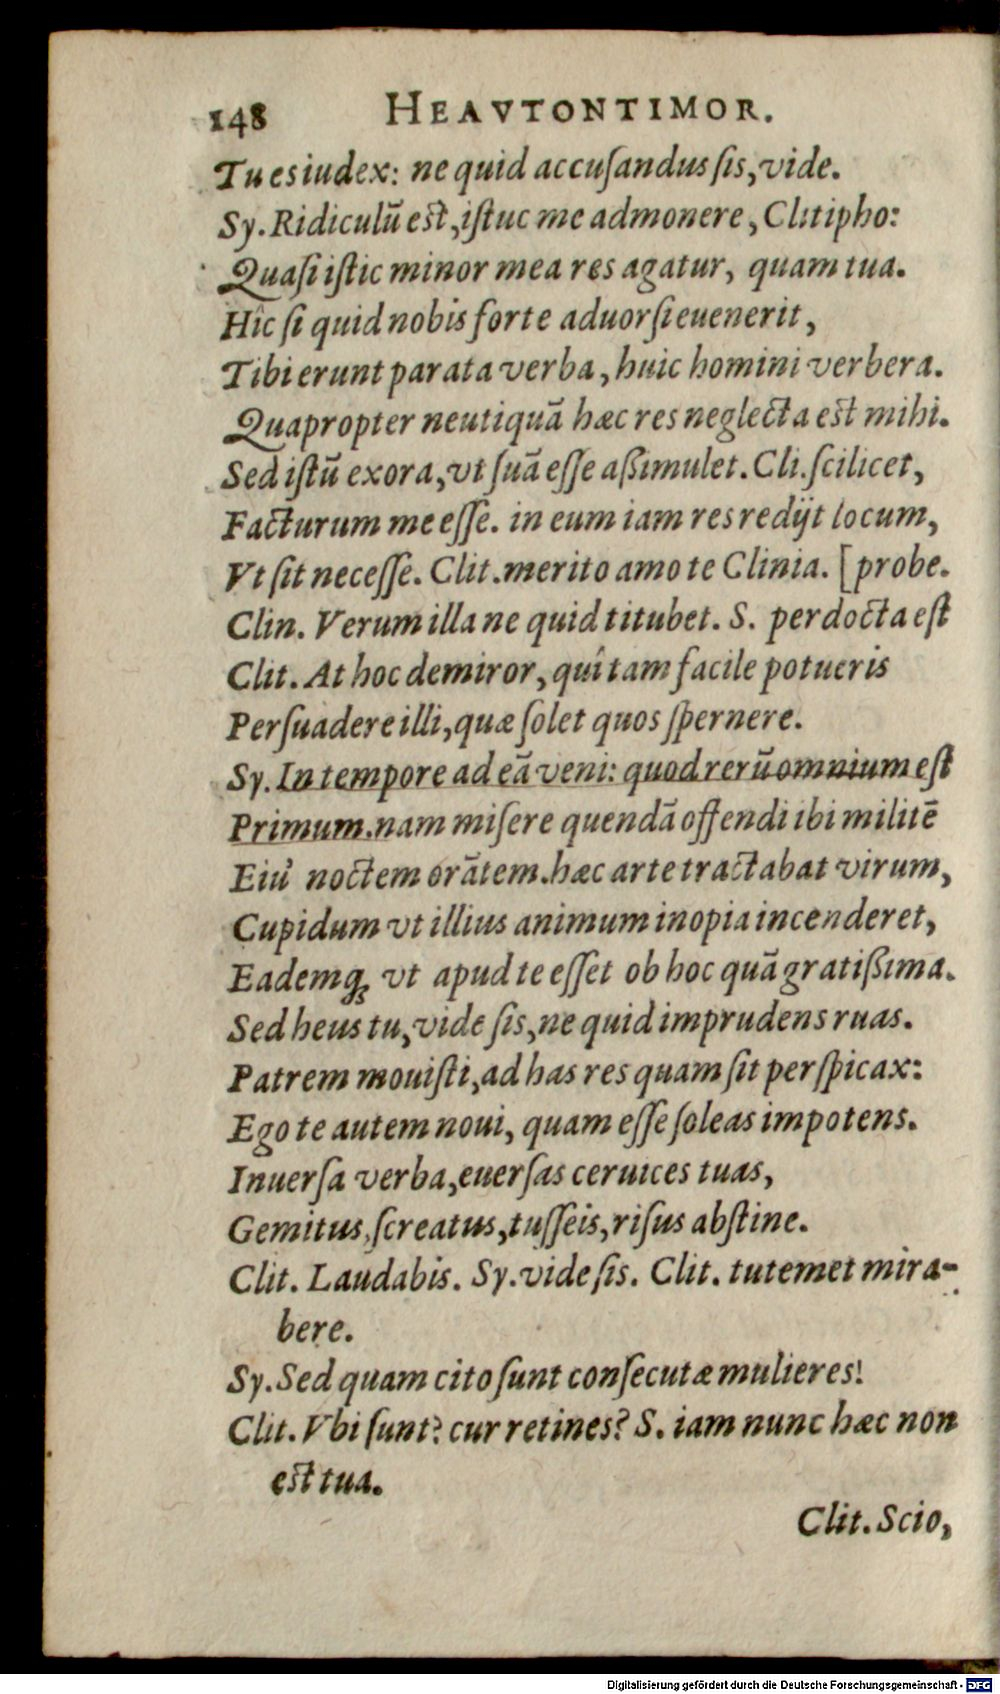 148 HEAVTONTIMOR.
Tu es iudex: ne quid accuſandus ſis, vide.
Sy. Ridiculũ eſt, iſtuc me admonere, Clitipho:
Quaſi iſtic minor mea res agatur, quam tua.
Hîc ſi quid nobis forte aduorſi euenerit,
Tibi erunt parata verba, huic homini verbera.
Quapropter neutiquã hæc res neglecta eſt mihi.
Sed iſtũ exora, vt ſuã eſſe aßimulet. Cli. ſcilicet,
Facturum me eſſe. in eum iam res redijt locum,
Vt ſit neceſſe. Clit. merito amo te Clinia. [probe.
Clin. Verum illa ne quid titubet. S. perdocta eſt
Clit. At hoc demiror, quî tam facile potueris
Perſuadere illi, quæ ſolet quos ſpernere.
Sy. In tempore ad eã veni: quod rerũ omnium eſt
Primum. nam miſere quendã offendi ibi militẽ
Eiu' noctem orãtem. hæc arte tractabat virum,
Cupidum vt illius animum inopia incenderet,
Eademq; vt apud te eſſet ob hoc quã gratißima.
Sed heus tu, vide ſis, ne quid imprudens ruas.
Patrem mouiſti, ad has res quam ſit perſpicax:
Ego te autem noui, quam eſſe ſoleas impotens.
Inuerſa verba, euerſas ceruices tuas,
Gemitus, ſcreatus, tuſſeis, riſus abſtine.
Clit. Laudabis. Sy. vide ſis. Clit. tutemet mira-
bere.
Sy. Sed quam cito ſunt conſecutæ mulieres!
Clit. Vbi ſunt? cur retines? S. iam nunc hæc non
eſt tua.
Clit. Scio,
Digitalisierung gefördert durch die Deutsche Forschungsgemeinschaft - DFG